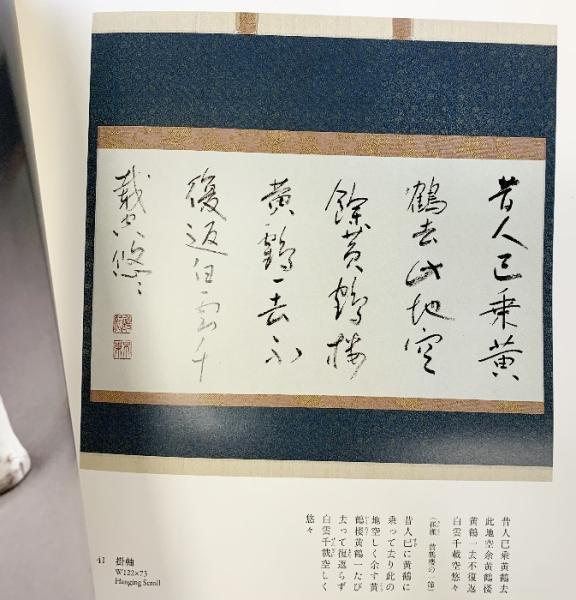 昔人已乗黄
鶴去此地空
餘黄鶴楼
黄鶴一去不
復返白雲千
載空悠々
昔人已乗黄鶴去
此地空余黄鶴楼
黄鶴一去不復返
白雲千載空悠々
昔人已に黄鶴に
乗って去り此の
地空しく余す黄
鶴楼黄鶴一たび
去って復返らず
白雲千載空しく
悠々
41 掛軸
W122×73
Hanging Scroll